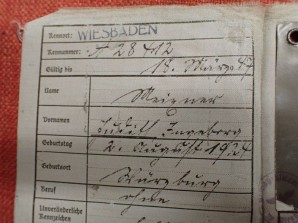 Kennort: WIESBADEN
Kennummer: A 28412
Gültig bis 18. März 47
Name Meixner
Vornamen Judith Ingeborg
Geburtstag 2. August 1924
Geburtsort Würzburg
Beruf ohne
Unveränderliche
Kennzeichen